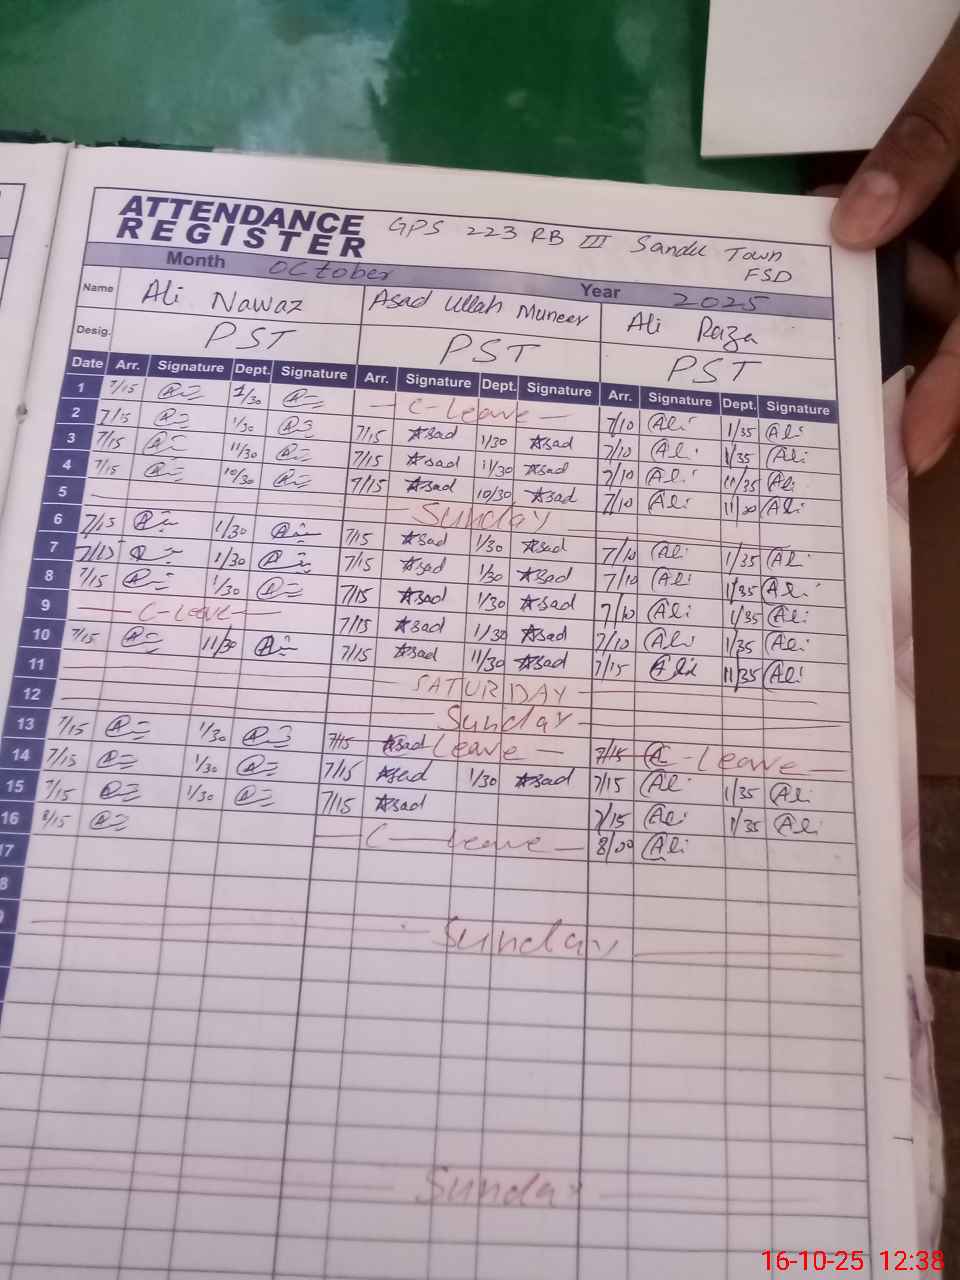 ATTENDANCE REGISTER GPS 223 RB III Sandu Town FSD
Month October Year 2025
Name Ali Nawaz Asad Ullah Muneer Ali Raza
Desig. PST PST PST
Date Arr. Signature Dept. Signature Arr. Signature Dept. Signature Arr. Signature Dept. Signature
1 7/15 1/30 C-Leave 7/10 Ali 1/35 Ali
2 7/15 1/30 7/15 Asad 1/30 Asad 7/10 Ali 1/35 Ali
3 7/15 11/30 7/15 Asad 11/30 Asad 7/10 Ali 11/35 Ali
4 7/15 10/30 7/15 Asad 10/30 Asad 7/10 Ali Ali
5 Sunday
6 7/15 1/30 7/15 Asad 1/30 Asad 7/10 Ali 1/35 Ali
7 7/15 1/30 7/15 Asad 1/30 Asad 7/10 Ali 1/35 Ali
8 7/15 1/30 7/15 Asad 1/30 Asad 7/10 Ali 1/35 Ali
9 C-Leave 7/15 Asad 1/30 Asad 7/10 Ali 1/35 Ali
10 7/15 11/30 7/15 Asad 11/30 Asad 7/15 Ali 11/35 Ali
11 SATURDAY
12 Sunday
13 7/15 1/30 7/15 Asad Leave 7/15 C-Leave
14 7/15 1/30 7/15 Asad 1/30 Asad 7/15 Ali 1/35 Ali
15 7/15 1/30 7/15 Asad 7/15 Ali 1/35 Ali
16 8/15 C-Leave 8/00 Ali
17
8
9 Sunday
Sunday
16-10-25 12:38